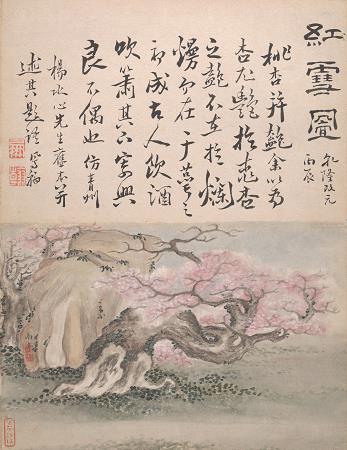 紅雪圖
乾隆改元
丙辰
桃杏并艷余以為
杏尤艷於桃杏
之艷不在於爛
熳 在于
初成古人飲酒
吹簫其 寓興
良不偶也仿青州
楊水心先生舊本并
述其題